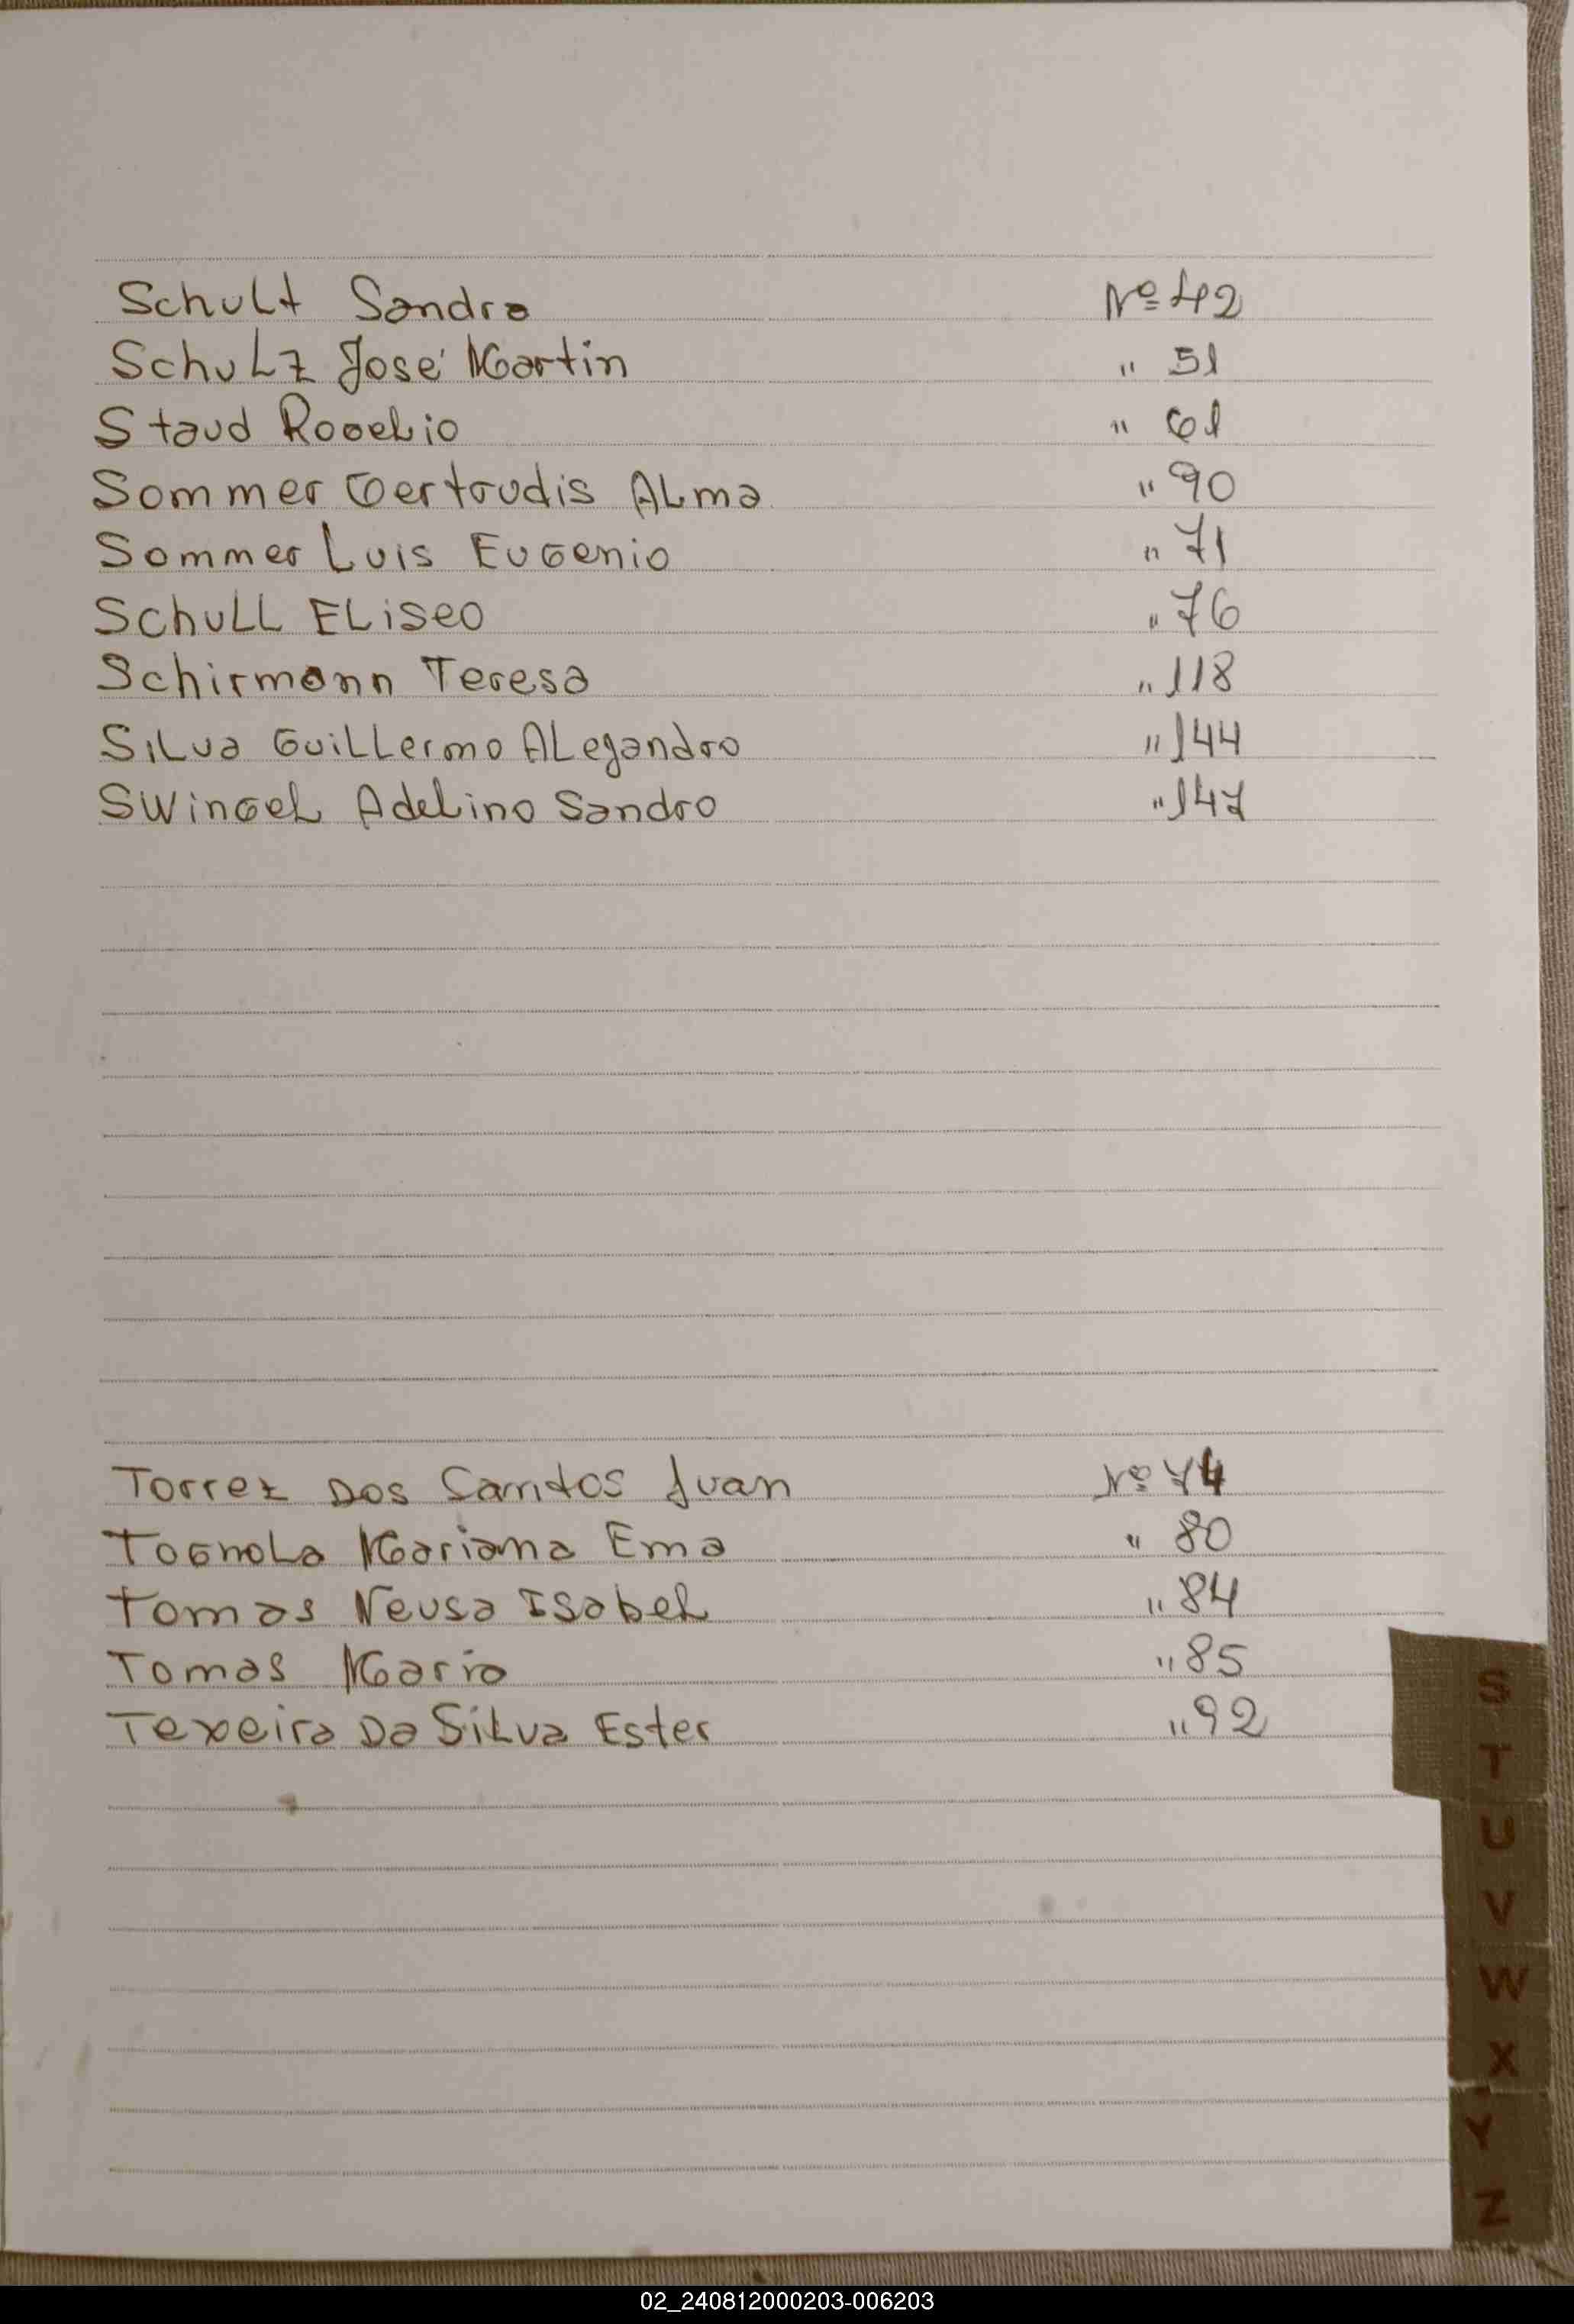 Schult Sandra Nº 42
Schulz José Martin " 51
Staud Rogelio " 61
Sommer Gertrudis Alma " 90
Sommer Luis Eugenio " 71
Schull Eliseo " 76
Schirmann Teresa " 118
Silva Guillermo Alejandro " 144
Swingel Adelino Sandro " 147
Torrez Dos Santos Juan Nº 74
Tognola Mariana Ema " 80
Tomas Neusa Isabel " 84
Tomas Mario " 85
Texeira Da Silva Ester " 92
S
T
U
V
W
X
Y
Z
02_240812000203-006203